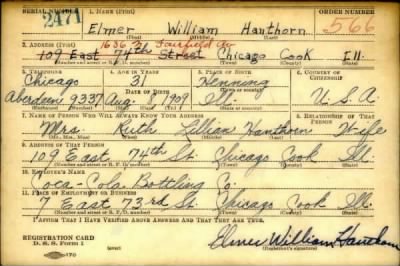 SERIAL NUMBER 1. NAME (Print) ORDER NUMBER
2471 Elmer William Hanthorn 566
(First) (Middle) (Last)
2. ADDRESS (Print) 1636 Fairfield Av
109 East 74th Street Chicago Cook Ill.
(Number and street or R. F. D. number) (Town) (County) (State)
3. TELEPHONE 4. AGE IN YEARS 5. PLACE OF BIRTH 6. COUNTRY OF CITIZENSHIP
Chicago 31 Henning
DATE OF BIRTH (Town or county)
Aberdeen 9337 Aug. 1909 Ill. U S A
(Exchange) (Number) (Mo.) (Day) (Yr.) (State or country)
7. NAME OF PERSON WHO WILL ALWAYS KNOW YOUR ADDRESS 8. RELATIONSHIP OF THAT PERSON
Mrs. Ruth Lillian Hanthorn Wife
(Mr., Mrs., Miss) (First) (Middle) (Last)
9. ADDRESS OF THAT PERSON
109 East 74th St. Chicago Cook Ill.
(Number and street or R. F. D. number) (Town) (County) (State)
10. EMPLOYER'S NAME
Coca-Cola Bottling Co.
11. PLACE OF EMPLOYMENT OR BUSINESS
7 East 73rd St. Chicago Cook Ill.
(Number and street or R. F. D. number) (Town) (County) (State)
I AFFIRM THAT I HAVE VERIFIED ABOVE ANSWERS AND THAT THEY ARE TRUE.
REGISTRATION CARD
D. S. S. Form 1
(over) Elmer William Hanthorn
(Registrant's signature)